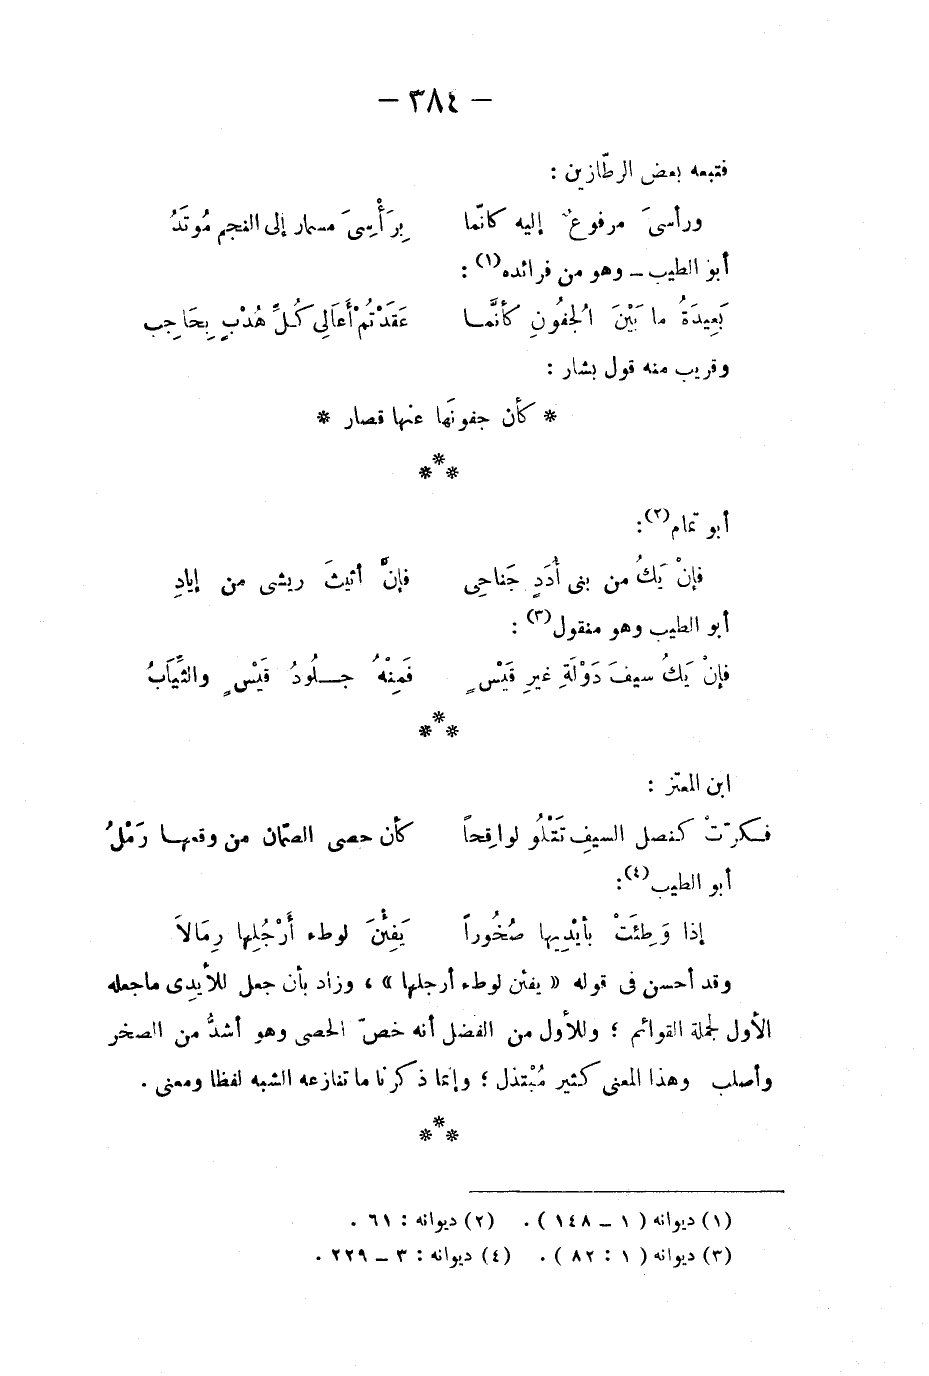 – ٣٨٤ –
فتبعه بعض الرطّازين :
ورأسىَ مرفوعٌ إليه كانّما بِرَأْسِىَ مسمار إلى النجم مُوتَدُ
أبو الطيب ــ وهو من فرائده(١) :
بَعِيدَةُ ما بَيْنَ الْجفُونِ كَأنَّمـا عَقَدْتُمْ أَعَالِى كُلِّ هُدْبٍ بِحَاجِب
وقريب منه قول بشار :
* كأن جفونَها عنها قصار *
***
أبو تمام(٢):
فإنْ يَكُ من بنى أُدَدٍ جَناحِى فإنَّ أثيثَ ريشى من إيادِ
أبو الطيب وهو منقول(٣) :
فإنْ يَكُ سيفَ دَوْلَةِ غيرِ قَيْسٍ فَمِنْهُ جــلُودُ قَيْسٍ والثِّيَابُ
***
ابن المعتز :
فـكرّتْ كنصل السيفِ تَتْلُو لواقِحاً كأن حصى الصّمّان من وقعهـا رَمْلُ
أبو الطيب(٤):
إذا وَطِئَتْ بأيْدِيها صُخُوراً يَفِئْنَ لوطء أَرْجُلِها رِمَالاَ
وقد أحسن فى قوله « يفئن لوطء أرجلها » ، وزاد بأن جعل للأيدى ماجعله
الأول لجملة القوائم ؛ وللأول من الفضل أنه خصّ الحصى وهو أشدُّ من الصخر
وأصلب وهذا المعنى كثير مُبْتذل ؛ وإنما ذكرنا ما تنازعه الشبه لفظا ومعنى .
***
(١) ديوانه ( ١ – ١٤٨ ) . (٢) ديوانه : ٦١ .
(٣) ديوانه ( ١ : ٨٢ ) . (٤) ديوانه : ٣ – ٢٢٩ .